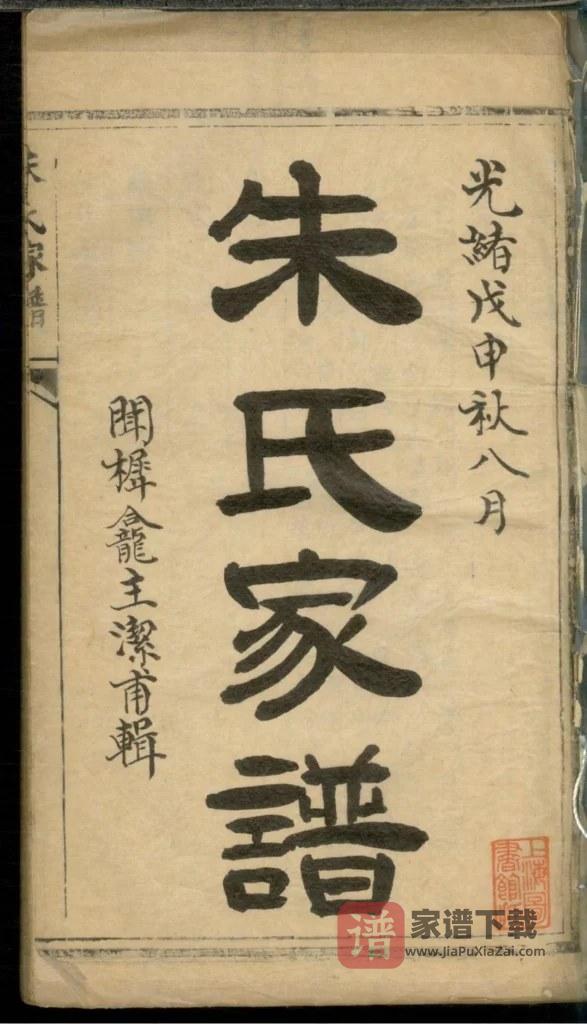 光緒戊申秋八月
朱氏家譜
聞樨龕主潔甫輯
朱氏家譜
上海圖
書館藏
谱
家谱下载
www.JiaPuXiaZai.com